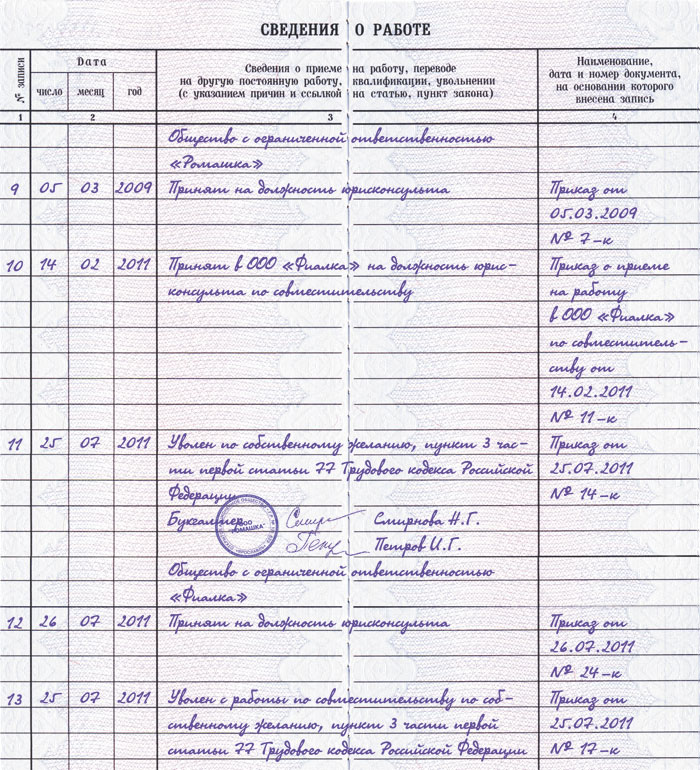 СВЕДЕНИЯ О РАБОТЕ
№ записи
Дата
число
месяц
год
Сведения о приеме на работу, переводе
на другую постоянную работу, квалификации, увольнении
(с указанием причин и ссылкой на статью, пункт закона)
Наименование,
дата и номер документа,
на основании которого
внесена запись
1 2 3 4
Общество с ограниченной ответственностью
«Ромашка»
9 05 03 2009 Принят на должность юрисконсульта Приказ от
05.03.2009
№ 7-к
10 14 02 2011 Принят в ООО «Фиалка» на должность юрис- Приказ о приеме
консульта по совместительству на работу
в ООО «Фиалка»
по совместитель-
ству от
14.02.2011
№ 11-к
11 25 07 2011 Уволен по собственному желанию, пункт 3 час- Приказ от
ти первой статьи 77 Трудового кодекса Российской 25.07.2011
Федерации № 14-к
Бухгалтер Смирнова Н.Г.
ООО
"РОМАШКА"
Петров И.Г.
Общество с ограниченной ответственностью
«Фиалка»
12 26 07 2011 Принят на должность юрисконсульта Приказ от
26.07.2011
№ 24-к
13 25 07 2011 Уволен с работы по совместительству по соб- Приказ от
ственному желанию, пункт 3 части первой 25.07.2011
статьи 77 Трудового кодекса Российской Федерации № 17-к